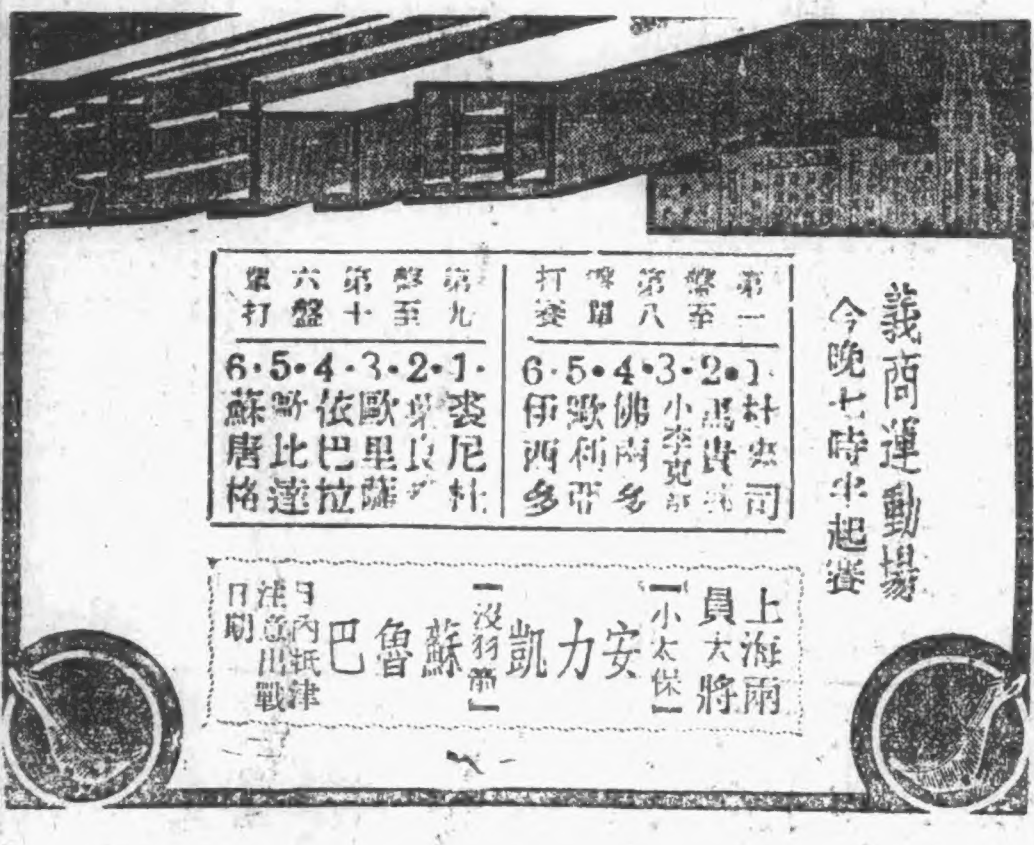 義商運動場
今晚七時半起賽
第一
盤至
第八
盤單
打賽
1·朴 司
2·馬貴
3·小李克
4·佛南多
5·歐利亞
6·伊西多
第九
盤至
第十
六盤
單打
1·裘尼杜
2· 良
3·歐里薩
4·依巴拉
5·歐比達
6·蘇唐格
上海兩
員大將
【小太保】
安力凱
【沒羽箭】
蘇魯巴
日內抵津
注意出戰
日期